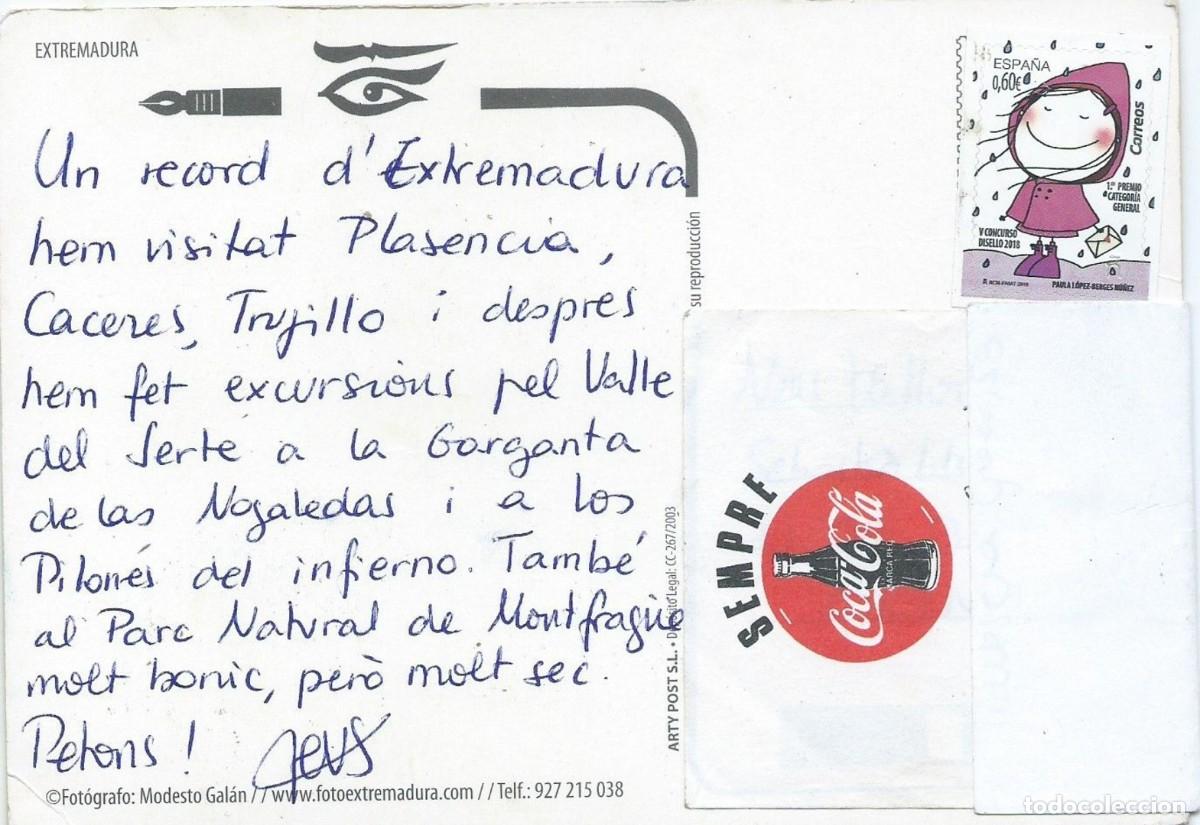 EXTREMADURA
Un record d'Extremadura
hem visitat Plasencia,
Caceres, Trujillo i despres
hem fet excursions pel Valle
del Jerte a la Garganta
de las Nogaledas i a los
Pilones del infierno. També
al Parc Natural de Montfragüe
molt bonic, però molt sec.
Petons!
©Fotógrafo: Modesto Galán // www.fotoextremadura.com // Telf.: 927 215 038
ARTY POST S.L. • Depósito Legal: CC-267/2003
su reproducción
ESPAÑA
0,60€
Correos
1.er PREMIO
CATEGORÍA
GENERAL
V CONCURSO
DISELLO 2018
PAULA LÓPEZ-BERGES NÚÑEZ
SEMPRE
Coca-Cola
MARCA REG
todocoleccion